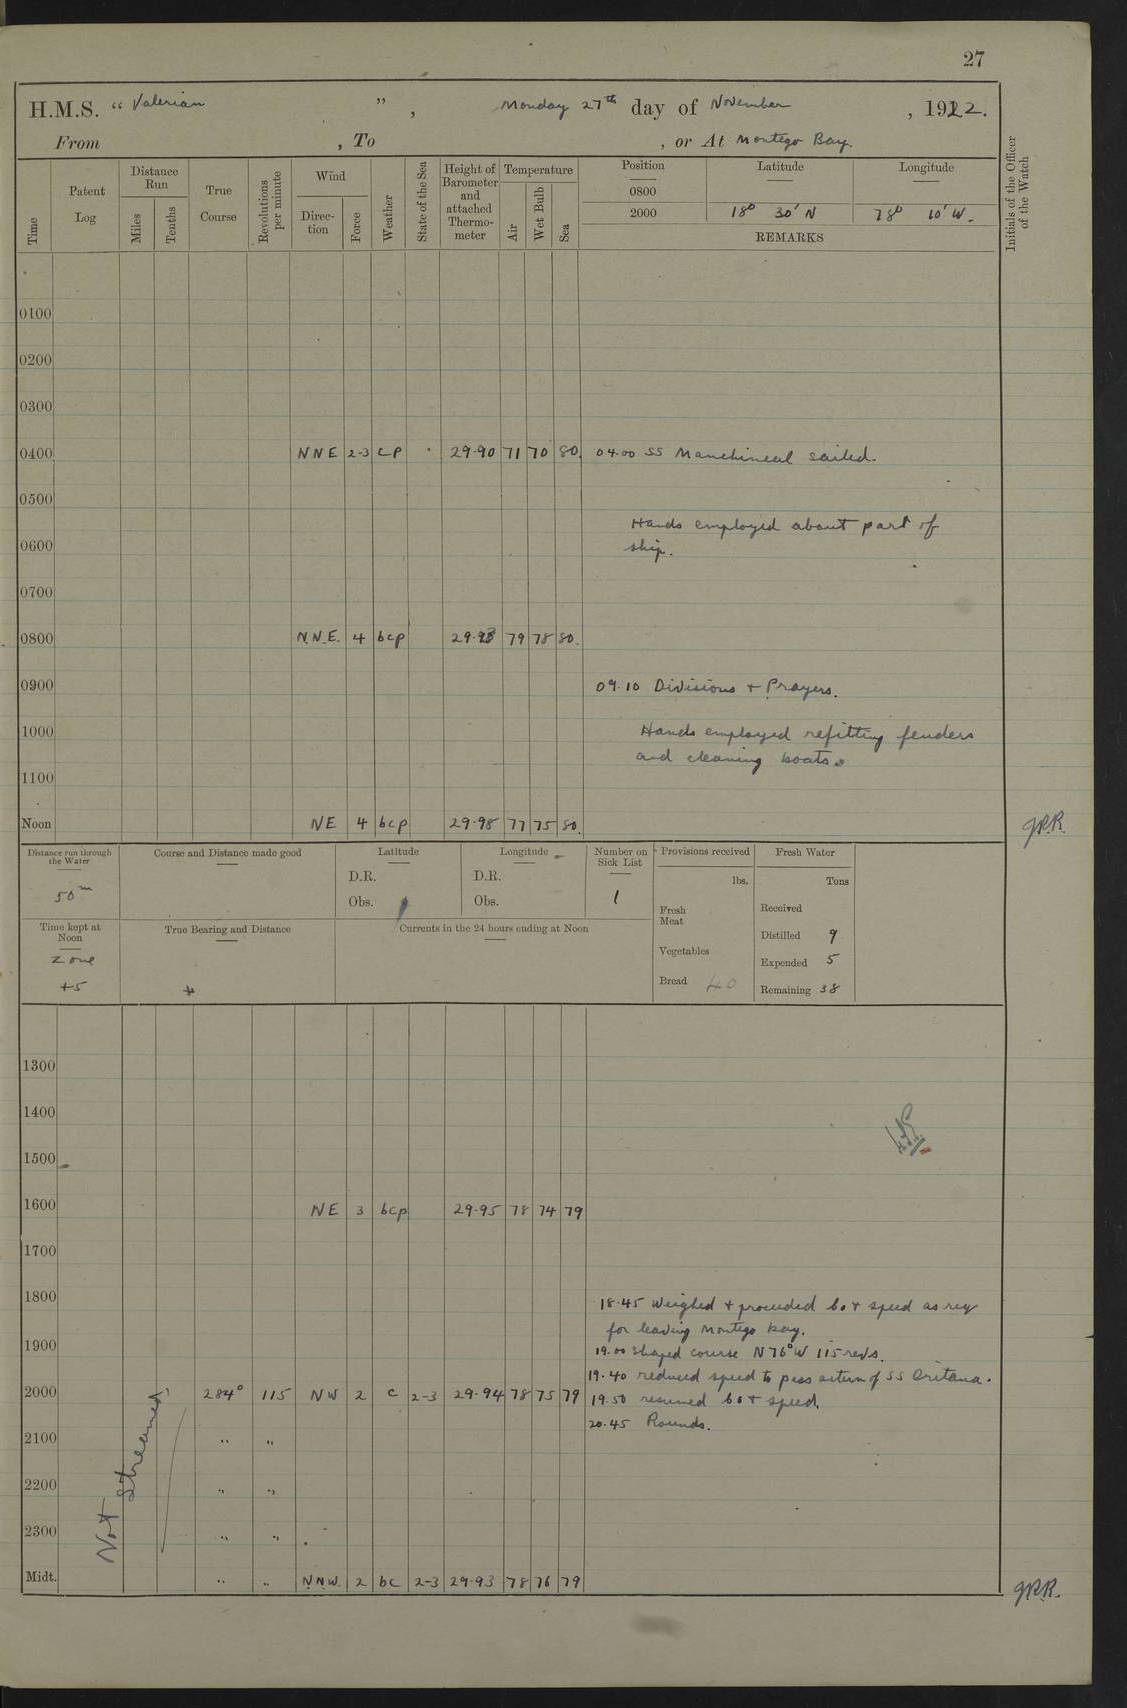 27
H.M.S. " Valerian ", Monday 27th day of November, 1922.
From , To , or At Montego Bay.
Time Patent Log Distance Run Miles Tenths True Course Revolutions per minute Wind Direc- tion Force Weather State of the Sea Height of Barometer and attached Thermo- meter Temperature Air Wet Bulb Sea Position Latitude Longitude Initials of the Officer of the Watch
0800
2000 18° 30' N 78° 10' W.
REMARKS
0100
0200
0300
0400 NNE 2-3 cp 29.90 71 70 80. 04.00 SS Manchineal sailed.
0500
Hands employed about part of
0600 ship.
0700
0800 N.N.E. 4 bcp 29.93 79 78 80.
0900 09.10 Divisions + Prayers.
1000 Hands employed refitting fenders
and cleaning boats.
1100
Noon NE 4 bcp 29.98 77 75 80. JRR.
Distance run through the Water Course and Distance made good Latitude Longitude Number on Sick List Provisions received Fresh Water
50m D.R. D.R. 1 lbs. Tons
Obs. Obs. Fresh Meat Received
Time kept at Noon True Bearing and Distance Currents in the 24 hours ending at Noon
Distilled 9
Zone Vegetables Expended 5
+5 Bread 40 Remaining 38
1300
1400
1500
1600 NE 3 bcp 29.95 78 74 79
1700
1800 18.45 Weighed + proceeded co + speed as req
for leaving Montego Bay.
1900 19.00 Shaped course N76°W 115 revs.
19.40 reduced speed to pass astern of SS Oritana.
2000 284° 115 NW 2 c 2-3 29.94 78 75 79 19.50 resumed co + speed.
20.45 Rounds.
2100 " "
2200 " "
2300 " "
Not Streamed
Midt. " " N.N.W. 2 bc 2-3 29.93 78 76 79 JRR.